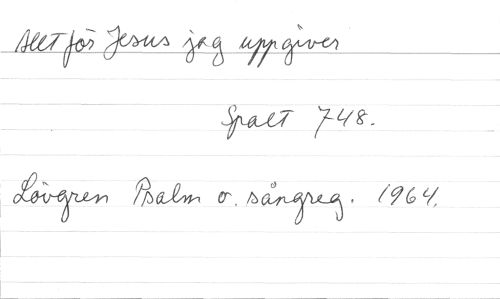 Allt för Jesus jag uppgiver
Spalt 748.
Lövgren Psalm o. sångreg. 1964.